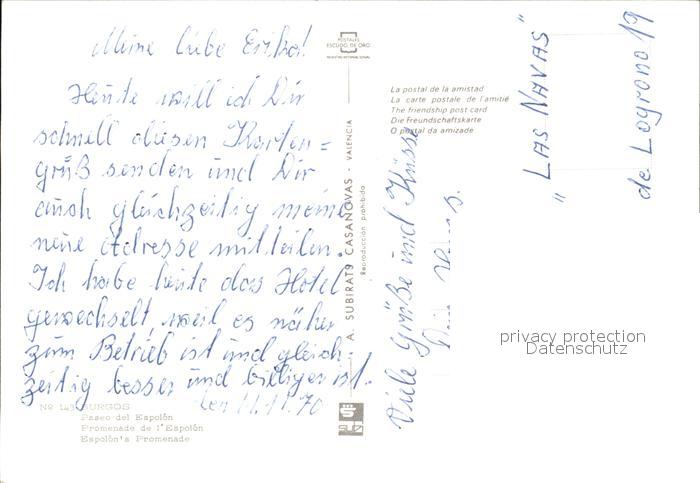 Meine liebe Erika!
Heute will ich Dir
schnell diesen Karten=
gruß senden und Dir
auch gleichzeitig meine
neue Adresse mitteilen.
Ich habe heute das Hotel
gewechselt, weil es näher
zum Betrieb ist und gleich-
zeitig besser und billiger ist.
den 11.11.70
Viele Grüße und Küsse
Dein
"LAS NAVAS"
de Logrono 19
POSTALES
ESCUDO DE ORO
La postal de la amistad
La carte postale de l'amitié
The friendship post card
Die Freundschaftskarte
O postal da amizade
A. SUBIRATS CASANOVAS - VALENCIA
Reproducción prohibida
Nº 143 BURGOS
Paseo del Espolón
Promenade de l'Espolón
Espolón's Promenade
privacy protection
Datenschutz